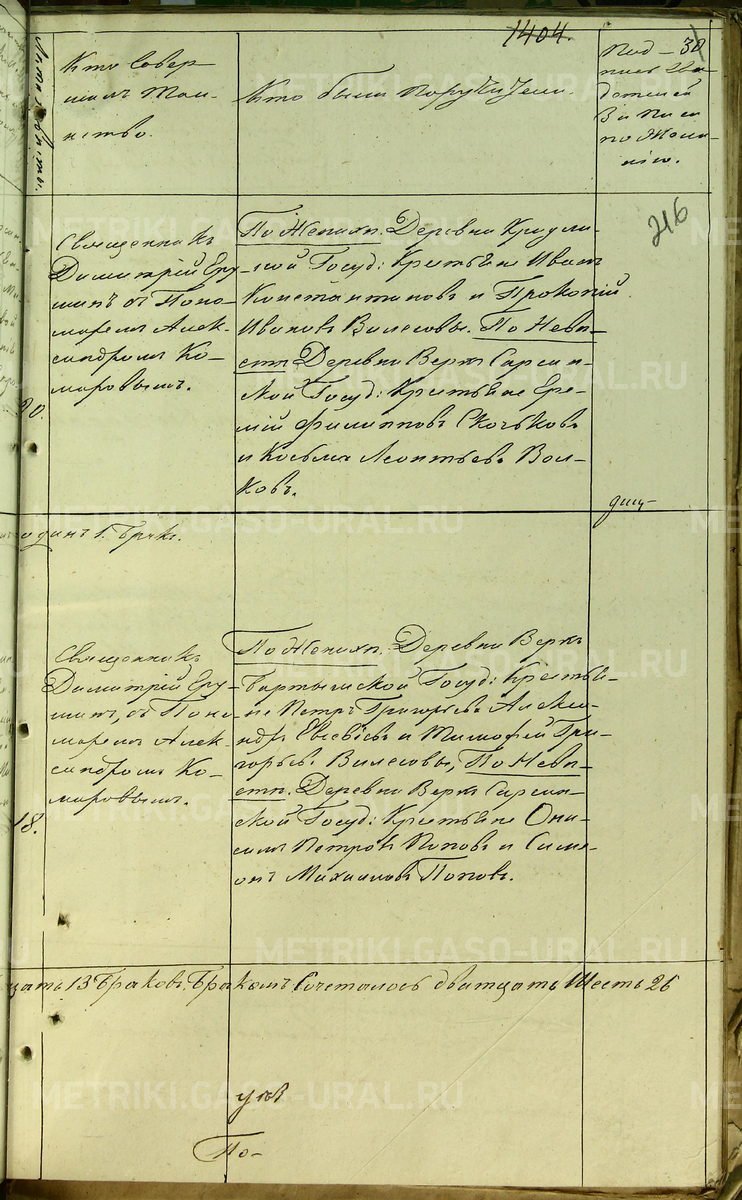 1404.
30
Лѣта невѣсты.
Кто совер-
шалъ Таи-
нство.
Кто были поручители.
Под-
пись Сви-
детелей
Записи
по Жела-
нію.
216
Священникъ
Димитрій Еру-
шинъ съ Поно-
маремъ Алек-
сандромъ Ко-
маровымъ.
20.
По Женихѣ. Деревни
ской Госуд: Крестьяне Иванъ
Константиновъ и Прокопій
Ивановъ Вилесовы. По Невѣ-
стѣ Деревни Верхъ Сарсин-
ской Госуд: Крестьяне Ере-
мѣй Филипповъ Скочковъ
и Косьма Леонтьевъ Вол-
ковъ.
одинъ 1. Бракъ.
Священникъ
Димитрій Еру-
шинъ, съ Поно-
маремъ Алек-
сандромъ Ко-
маровымъ.
18.
По Женихѣ. Деревни Верхъ
Бартымской Госуд: Крестья-
не Петръ Григорьевъ Алекса-
ндръ Евсевьевъ и Тимофей Гри-
горьевъ Вилесовы, По Невѣ-
стѣ. Деревни Верхъ Сарсин-
ской Госуд: Крестьяне Они-
симъ Петровъ Поповъ и Симе-
онъ Михаиловъ Поповъ.
цать 13 Браковъ. Бракомъ Сочеталось дватцать Шесть 26
По-
METRIKI.GASO-URAL.RU